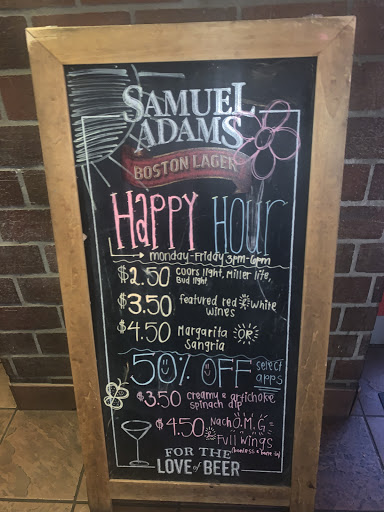 SAMUEL
ADAMS
BOSTON LAGER
HAPPY HOUR
monday-Friday 3pm-6pm
$2.50 Coors light, Miller lite,
Bud light
$3.50 featured red & white
wines
$4.50 Margarita OR
Sangria
50% OFF select
apps
$3.50 creamy & artichoke
spinach dip
$4.50 Nach O.M.G
Full Wings
FOR THE
LOVE of BEER